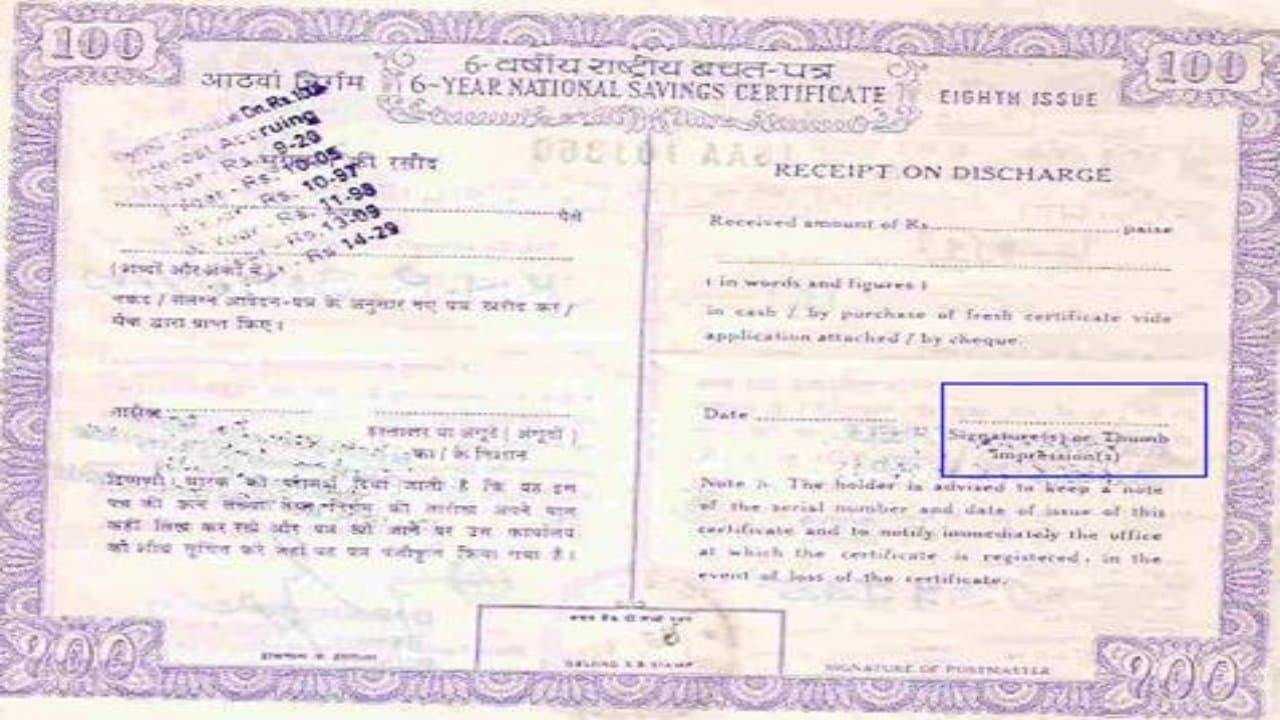 100
100
6-वर्षीय राष्ट्रीय बचत-पत्र
आठवां निर्गम
6-YEAR NATIONAL SAVINGS CERTIFICATE
EIGHTH ISSUE
On Rs.
Accruing
Rs. 9-20
Rs. 10-05
Rs. 10-97
Rs. 11-98
Rs. 13-09
Rs 14-29
की रसीद
पैसे
(शब्दों और अंकों में)
नकद / संलग्न आवेदन-पत्र के अनुसार नए पत्र खरीद कर /
चैक द्वारा प्राप्त किए।
तारीख
हस्ताक्षर या अंगूठे ( अंगूठों )
का / के निशान
टिप्पणी: धारक को परामर्श दिया जाती है कि वह इस
पत्र की क्रम संख्या तथा निर्गम की तारीख अपने पास
कहीं लिख कर रखे और पत्र खो जाने पर उस कार्यालय
को शीघ्र सूचित करे जहां वह पत्र पंजीकृत किया गया है।
RECEIPT ON DISCHARGE
Received amount of Rs. paise
( in words and figures )
in cash / by purchase of fresh certificate vide
application attached / by cheque.
Date
Signature(s) or Thumb
impression(s)
Note :- The holder is advised to keep a note
of the serial number and date of issue of this
certificate and to notify immediately the office
at which the certificate is registered, in the
event of loss of the certificate.
SIGNATURE OF POSTMASTER
100
100